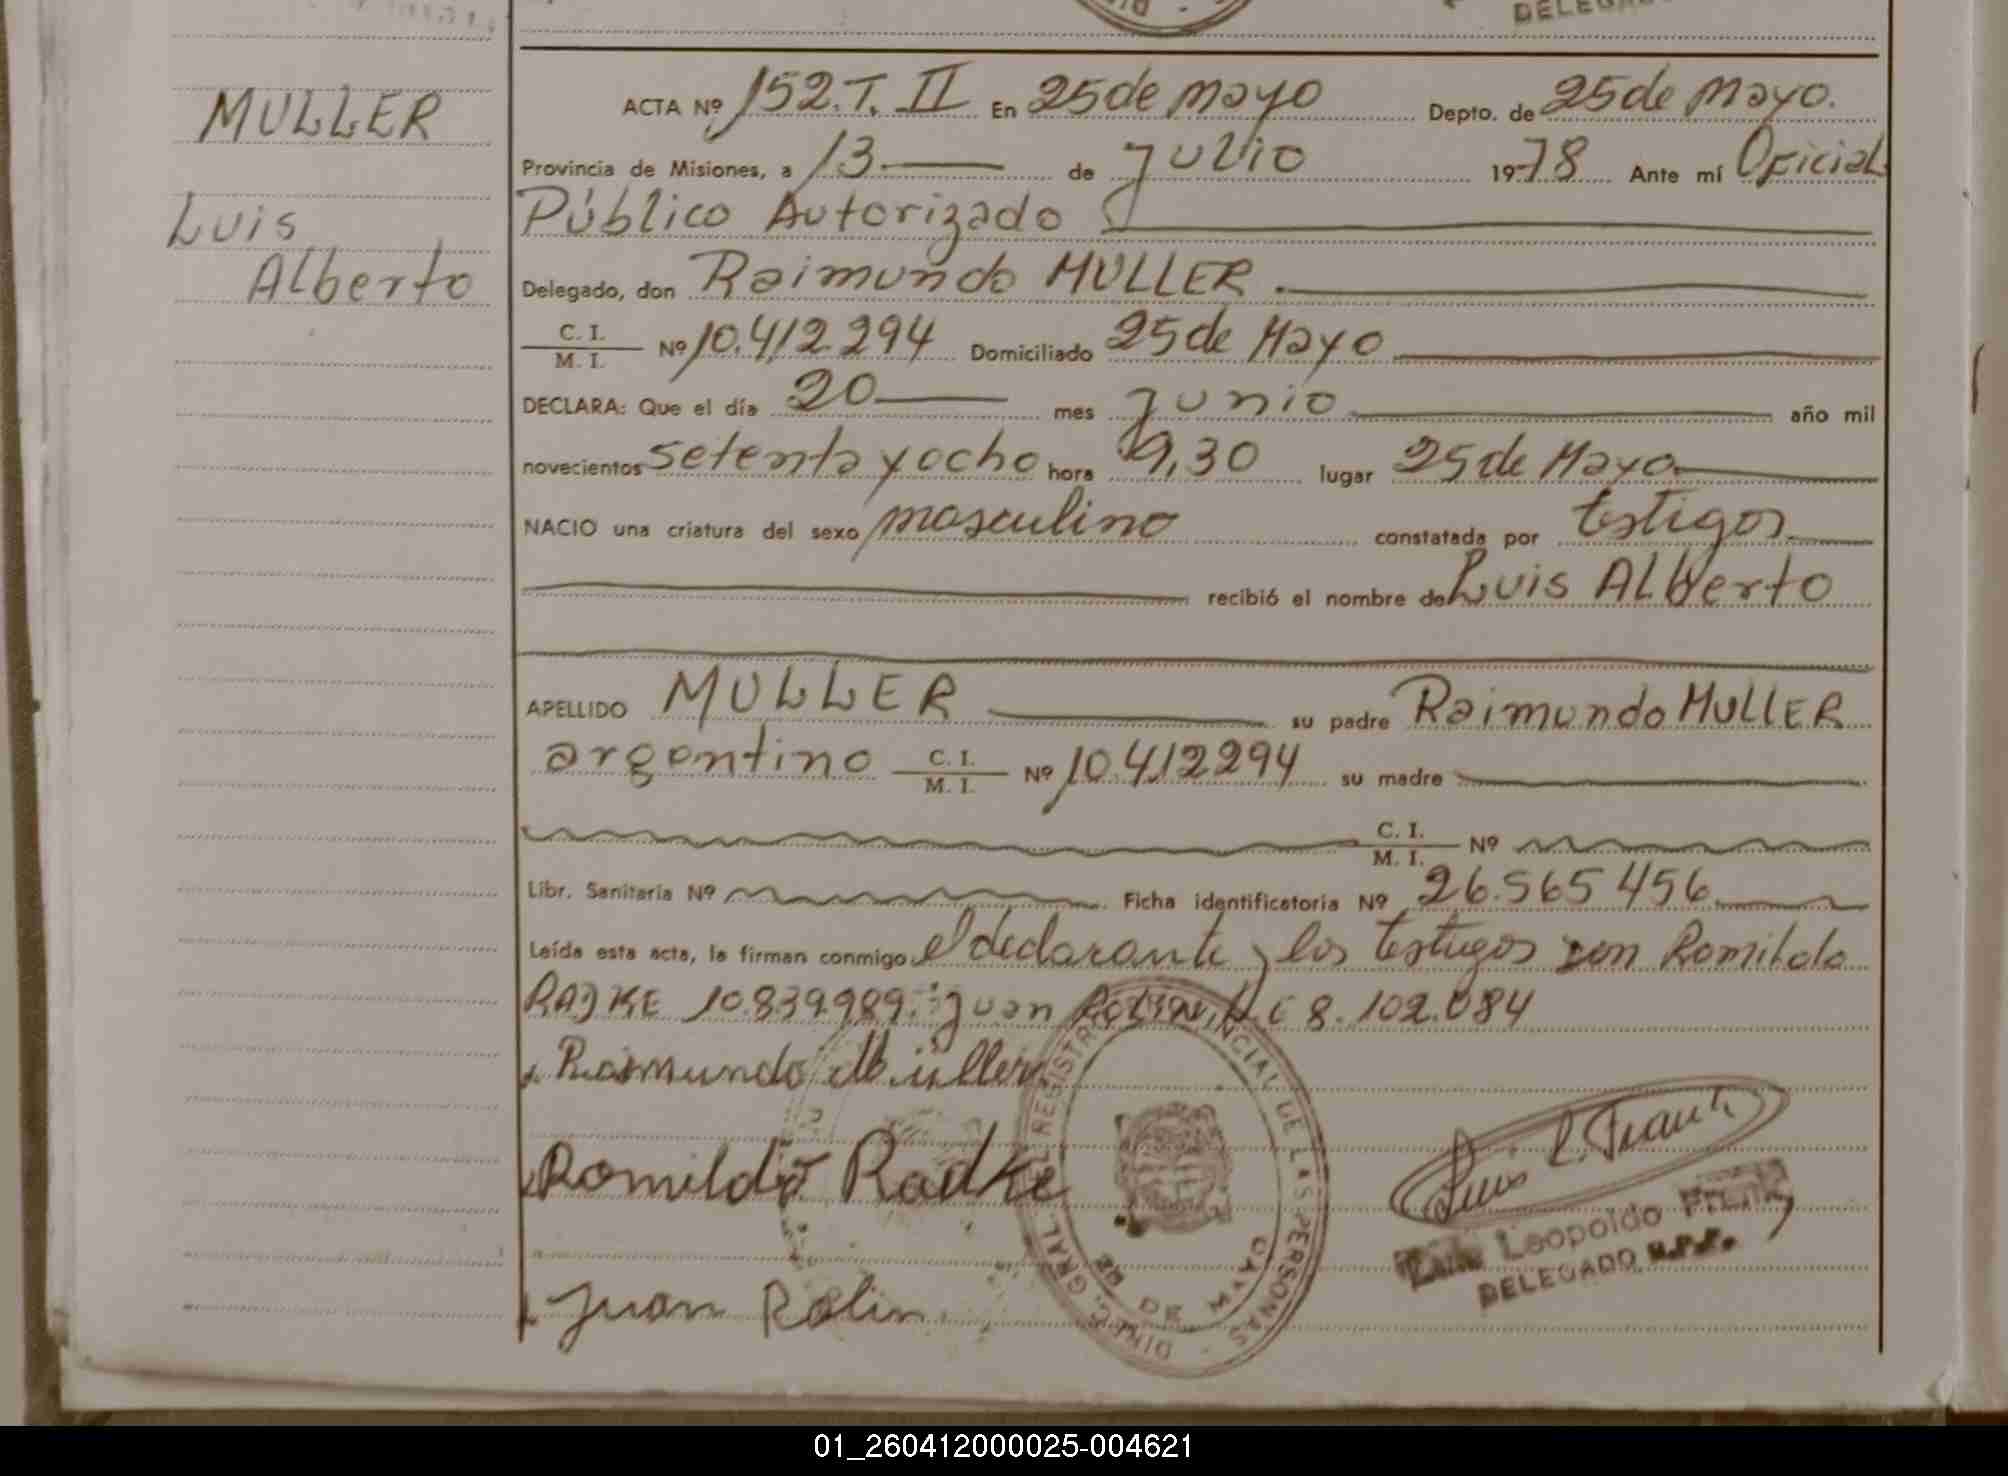 DELEGADO
MULLER
Luis
Alberto
ACTA Nº 152.T. II En 25 de mayo Depto. de 25 de Mayo.
Provincia de Misiones, a 13 de julio 1978 Ante mí Oficial
Público Autorizado
Delegado, don Raimundo MULLER.
C. I.
M. I. Nº 10.412.294 Domiciliado 25 de Mayo
DECLARA: Que el día 20 mes junio año mil
novecientos setenta y ocho hora 9,30 lugar 25 de Mayo
NACIO una criatura del sexo masculino constatada por testigos
recibió el nombre de Luis Alberto
APELLIDO MULLER su padre Raimundo MULLER
argentino C. I. M. I. Nº 10.412294 su madre
C. I. M. I. Nº
Libr. Sanitaria Nº Ficha identificatoria Nº 26.565456
Leída esta acta, la firman conmigo el declarante y los testigos son Romildo
RADKE 10.839.989. Juan 8.102.084
Raimundo Müller
Romildo Radke
Juan Rolin
DIREC. GRAL. REGISTRO PROVINCIAL DE LAS PERSONAS
25 DE MAYO
Luis L.
Luis Leopoldo
DELEGADO
01_260412000025-004621